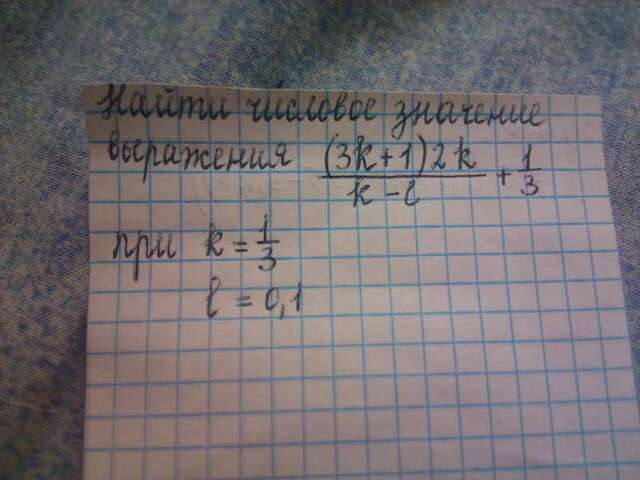 Найти числовое значение
выражения (3k+1)2k/k-l + 1/3
при k = 1/3
l = 0,1